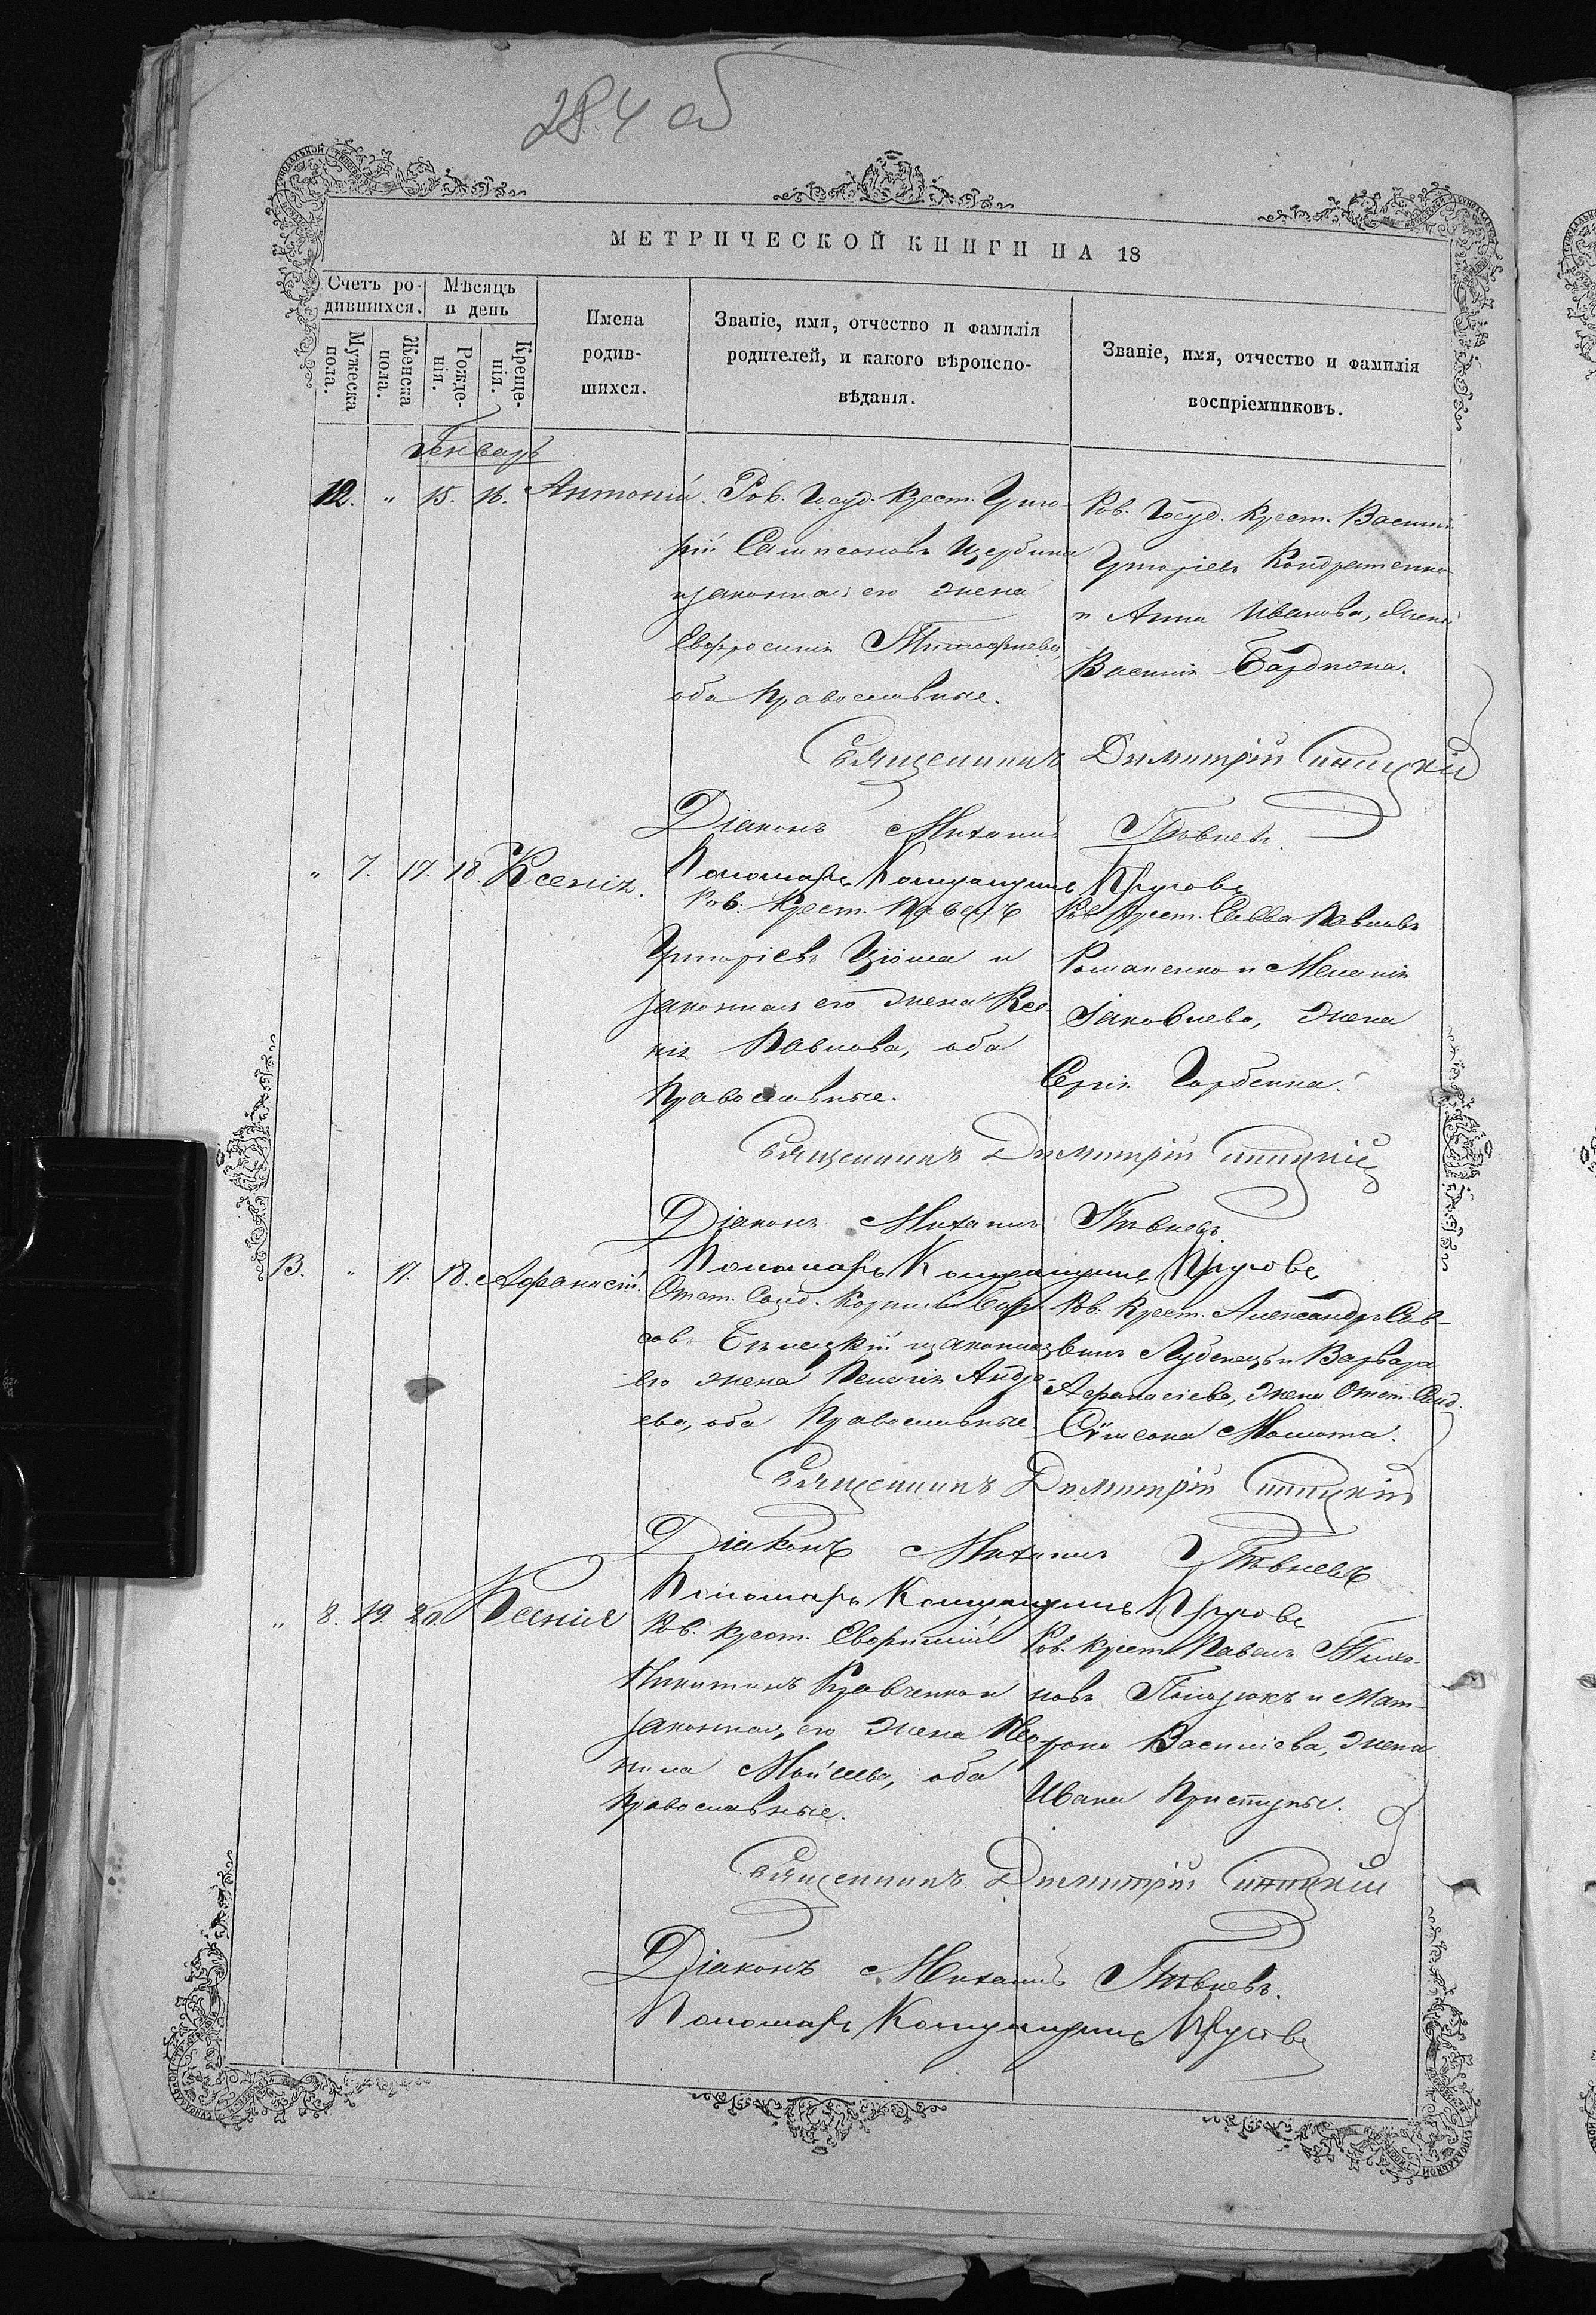 284 об
МЕТРИЧЕСКОЙ КНИГИ НА 18
Счетъ ро-
дившихся.
Мѣсяцъ
и день
Мужеска
пола.
Женска
пола.
Рожде-
нія.
Креще-
нія.
Имена
родив-
шихся.
Званіе, имя, отчество и фамилія
родителей, и какого вѣроиспо-
вѣданія.
Званіе, имя, отчество и фамилія
воспріемниковъ.
Генварь
12. " 15. 16. Антоній.
Ков. Госуд. Крест. Григо-
рій Сампсоновъ Щербина
и законная его жена
Евфросинія Тимофіева,
оба Православные.
Ков. Госуд. Крест. Василій
Григоріевъ Кондратенко
и Анна Иванова, жена
Василія Бардиона.
Священникъ Димитрій
Діаконъ Михаилъ Пѣвневъ.
Пономарь
" 7. 17. 18. Ксенія.
Ков. Крест. Павелъ
Григоріевъ и
законная его жена Ксе-
нія Павлова, оба
Православные.
Ков. Крест. Савва Павловъ
Романенко и Меланія
Іаковлева, жена
Сергія Горбенка.
Священникъ Димитрій
Діаконъ Михаилъ Пѣвневъ.
Пономарь
13. " 17. 18. Афанасій.
Отст. Солд. Корнилій Бори-
совъ Бѣлецкій и законная
его жена Пелагія Андре-
ева, оба Православные.
Ков. Крест. Александръ Сав-
винъ Лубенецъ и Варвара
Афанасіева, жена Отст. Солд.
Сѵмеона Момота.
Священникъ Димитрій
Діаконъ Михаилъ Пѣвневъ
Пономарь
" 8. 19. 20. Ксенія
Ков. Крест. Евфимій
Никитинъ Кравченко и
законная его жена Нео-
нила Моисеева, оба
Православные.
Ков. Крест. Павелъ Тихо-
новъ и Мат-
рона Василіева, жена
Ивана Приступы.
Священникъ Димитрій
Діаконъ Михаилъ Пѣвневъ.
Пономарь